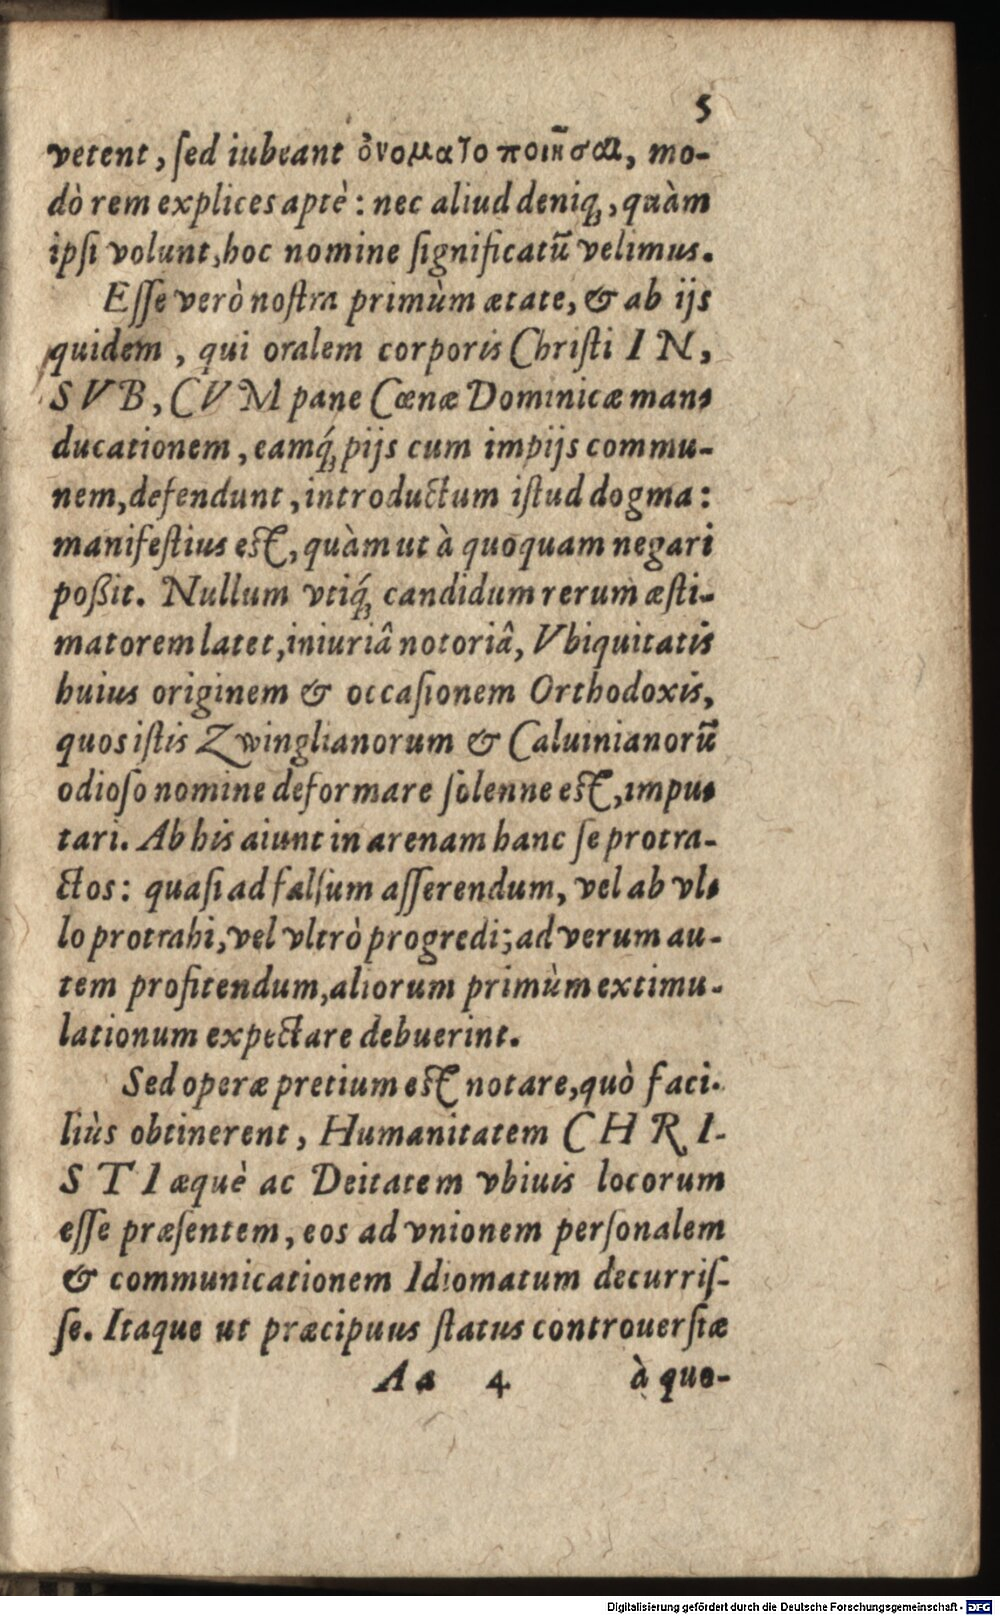 5
vetent, ſed iubeant ὀνοματοποιῆσαι, mo-
dò rem explices aptè: nec aliud deniq́;, quàm
ipſi volunt, hoc nomine ſignificatũ velimus.
Eſſe verò noſtra primùm ætate, & ab ijs
quidem, qui oralem corporis Chriſti IN,
SVB, CVM pane Cœnæ Dominicæ man-
ducationem, eamq́; pijs cum impijs commu-
nem, defendunt, introductum iſtud dogma:
manifeſtius eſt, quàm ut à quoquam negari
poßit. Nullum vtiq́; candidum rerum æſti-
matorem latet, iniuriâ notoriâ, Vbiquitatis
huius originem & occaſionem Orthodoxis,
quos iſtis Zwinglianorum & Caluinianorũ
odioſo nomine deformare ſolenne eſt, impu-
tari. Ab his aiunt in arenam hanc ſe protra-
ctos: quaſi ad falſum aſſerendum, vel ab vl-
lo protrahi, vel vltrò progredi; ad verum au-
tem profitendum, aliorum primùm extimu-
lationum expectare debuerint.
Sed operæ pretium eſt notare, quò faci-
liùs obtinerent, Humanitatem CHRI-
STI æquè ac Deitatem vbiuis locorum
eſſe præſentem, eos ad vnionem perſonalem
& communicationem Idiomatum decurriſ-
ſe. Itaque ut præcipuus ſtatus controuerſiæ
Aa 4 à quo-
Digitalisierung gefördert durch die Deutsche Forschungsgemeinschaft - DFG